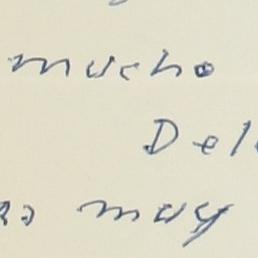 mucho
Del
muy